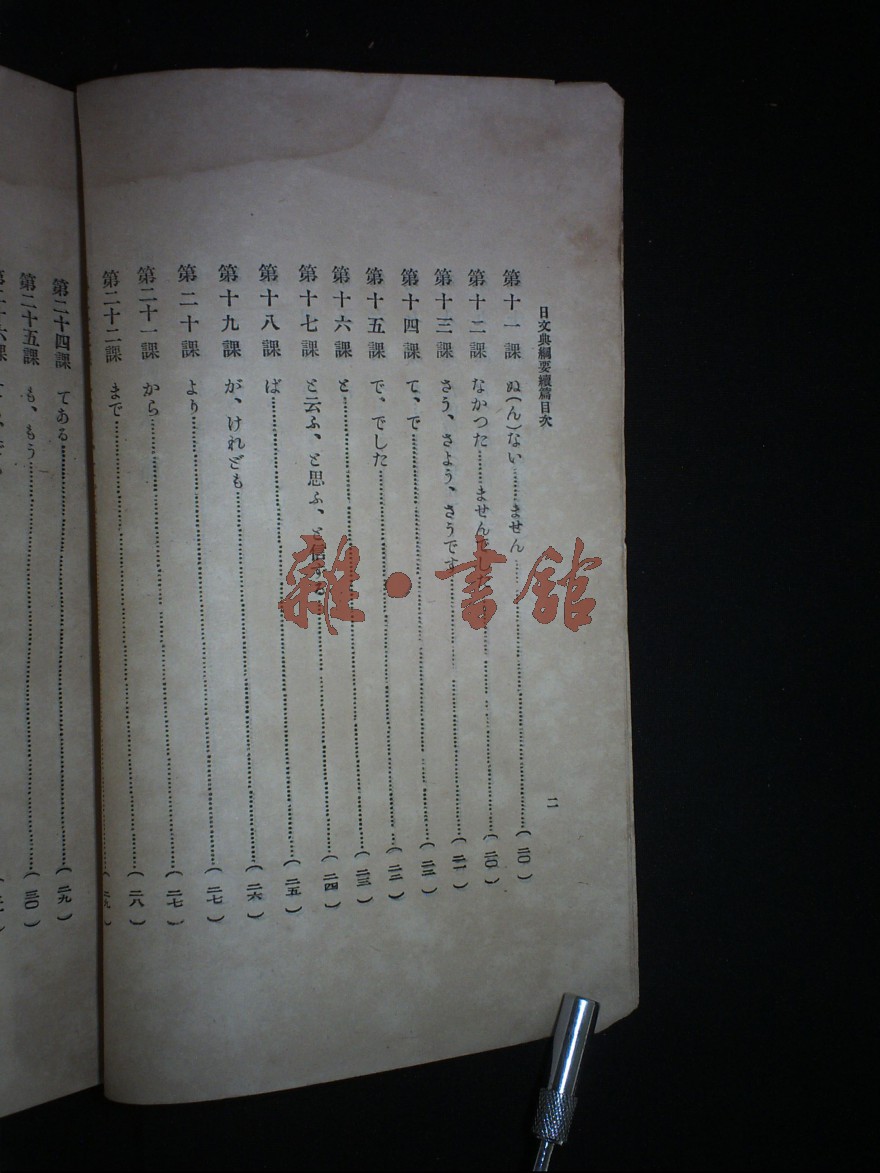 日文典綱要續篇目次
二
第十一課 ぬ(ん)ない……ません……(二〇)
第十二課 なかつた……ませんでした……(二〇)
第十三課 さう、さよう、さうです……(二一)
第十四課 て、で……(二二)
第十五課 で、でした……(二二)
第十六課 と……(二三)
第十七課 と云ふ、と思ふ、と信ずる……(二四)
第十八課 ば……(二五)
第十九課 が、けれども……(二六)
第二十課 より……(二七)
第二十一課 から……(二七)
第二十二課 まで……(二八)
第二十四課 てある……(二九)
第二十五課 も、もう……(三〇)
雜·書館